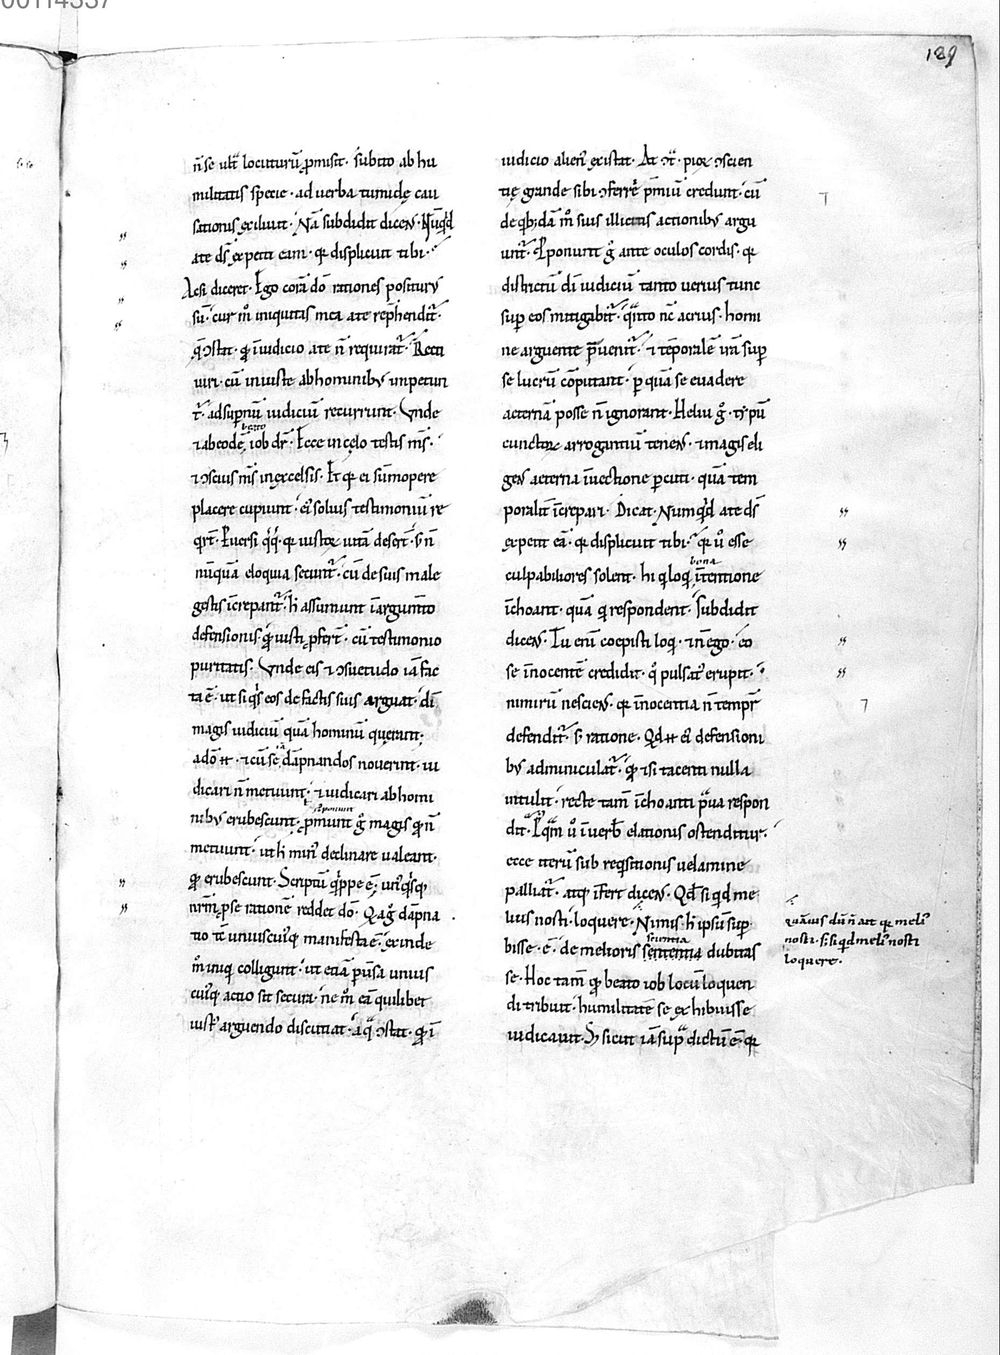 189
n̄ se ult̄ locuturū p̱misit · subito ab hu
militatis specie · ad verba tumidę cau
sationis exiliuit · Nā subdidit dicens · Nūq̇d
a te ds̄ expetit eam · quia displicuit tibi ·
Ac si diceret · Ego corā dō rationes positurus
sū · cur m̊ iniquitas mea a te rep̄hendit̄ ·
q̄ ↄstat · quia ī iudicio a te n̄ requirat̄ · Recti
uiri · cū iniuste ab hominibus impetun
t̄ · ad supnū iudiciū recurrunt · Vnde
beato
⁊ ab eodē iob dr̄ · Ecce in cęlo testis ms̄ ·
⁊ ↄscius ms̄ in excelsis · Et quia ei sūmopere
placere cupiunt · ei solius testimoniū re
q̇rt̄ · Puersi q̊q̊ · quia iustoꝝ uitā deserт̄ · s; n̄
nūquā eloquia secunt̄ · cū de suis male
gestis īcrepant̄ · h̄ assumunt ī argum̄to
defensionis · q̄ iusti pfert̄ · cū testimonio
puritatis · Vnde eis ⁊ ↄsuetudo iā fac
ta ē · ut si q̇s eos de factis suis arguat · dī
magis iudiciū quā hominū querant ;
a dō n̄ · ⁊ cū se dāpnandos nouerint · iu
dicari n̄ metuunt · ⁊ iudicari ab homi
nibus erubescunt · p̄munt g̊ magis quod n̄
metuunt · ut h̄ min declinare ualeant ·
quod erubescunt · Scriptū q̇ppe ē · unusq̇sq;
nr̄m p se rationē reddet dō · Qa g̊ dāpna
tio tē uniuscuiq; manifesta ē · exinde
m̊ iniqui colligunt · ut etiā puersa unius
cuiq; actio sit secura · ne m̊ eā quilibet
iustus arguendo discutiat · a q̊ ↄstat · quod ī
iudicio alien existat · At ↄt̄ · pioꝝ ↄscien
tię grande sibi ↄferrē p̄miū credunt · cū
de q̇b;dā m̊ suis illicitis actionibus argu
unt̄ · Pponunt g̊ ante oculos cordis · quia
districtū dī iudiciū tanto uerius tunc
sup eos mitigabit̄ · q̊nto nc̄ acrius · homi
ne arguente p̄uenit̄ · ⁊ tēporalē irā sup
se lucrū cōputant · p quā se euadere
aeternā posse n̄ ignorant · Heliu g̊ · typū
cunctoꝝ arrogantiū tenens · ⁊ magis eli
gens aeterna īuectione pcuti · quā tem
poralit̄ īcrepari · Dicat · Numq̇d a te ds̄
expetit eā · quia displicuit tibi · quia u̇ esse
culpabiliores solent · hi qui loqui bona ītentione
īchoant · quā qui respondent · Subdidit
dicens · Tu enī coepisti loqui · ⁊ n̄ ego · eo
se īnocentē credidit · q̊ pulsatus erupit ·
nimirū nesciens · quia īnocentia n̄ tempr̄
defendit̄ · s; ratione · Qd n̄ ei defensioni
bus adminiculat̄ · quod ⁊ si tacenti nulla
intulit · recte tam̄ īchoanti p̊ua respon
dit · Pq̊m u̇ ī uerb elationis ostenditur ·
ecce iterū sub req̇sitionis uelamine
palliat̄ · atq; īfert dicens · Qd si qid me
lius nosti · loquere · Nimis · h̄ ipsū sup
scientia
bisse · ē · de melioris sententia dubitas
se · Hoc tam̄ quod beato iob locū loquen
di tribuit · humilitatē se exhibuisse
iudicauit · S; sicut iā sup̊ dictū ē · quia
quāuis dū n̄ ait quia meli
nosti · s; si qd meli nosti
loquere ·